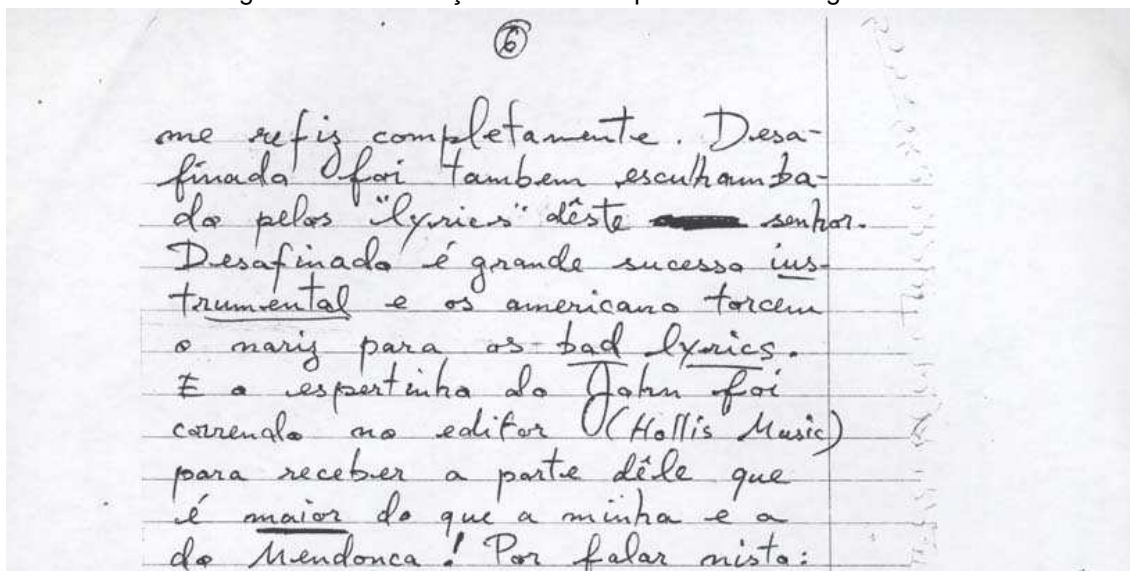 6
me refiz completamente. Desa-
finado foi tambem esculhamba-
do pelos "lyrics" dêste senhor.
Desafinado é grande sucesso ins-
trumental e os americano torcem
o nariz para os bad lyrics.
E o espertinho do John foi
correndo no editor (Hollis Music)
para receber a parte dêle que
é maior do que a minha e a
do Mendonca! Por falar nisto: